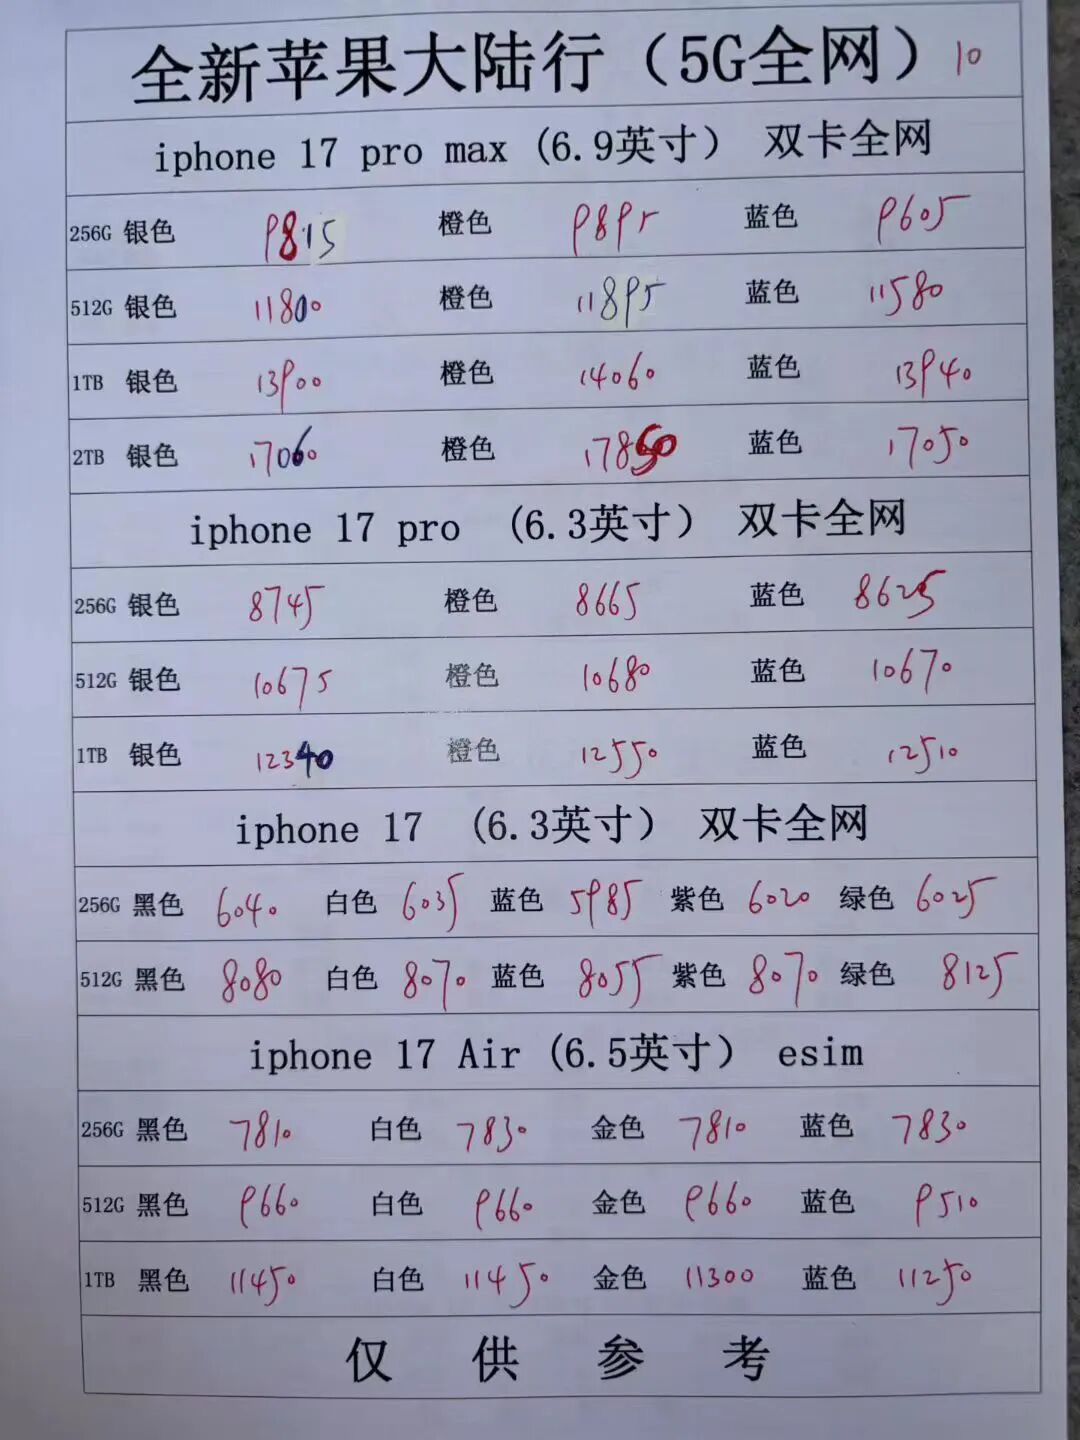 全新苹果大陆行（5G全网）10
iphone 17 pro max（6.9英寸） 双卡全网
256G 银色 9815 橙色 9895 蓝色 9605
512G 银色 11800 橙色 11895 蓝色 11580
1TB 银色 13900 橙色 14060 蓝色 13940
2TB 银色 17060 橙色 17850 蓝色 17050
iphone 17 pro （6.3英寸） 双卡全网
256G 银色 8745 橙色 8665 蓝色 8625
512G 银色 10675 橙色 10680 蓝色 10670
1TB 银色 12340 橙色 12550 蓝色 12510
iphone 17 （6.3英寸） 双卡全网
256G 黑色 6040 白色 6035 蓝色 5985 紫色 6020 绿色 6025
512G 黑色 8080 白色 8070 蓝色 8055 紫色 8070 绿色 8125
iphone 17 Air（6.5英寸） esim
256G 黑色 7810 白色 7830 金色 7810 蓝色 7830
512G 黑色 9660 白色 9660 金色 9660 蓝色 9510
1TB 黑色 11450 白色 11450 金色 11300 蓝色 11250
仅供参考